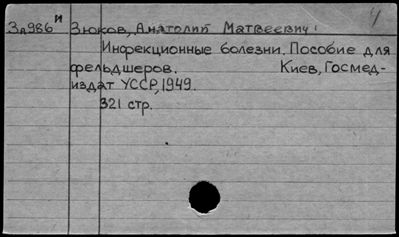 4
Зд986 и Зюков, Анатолий Матвеевич
Инфекционные болезни. Пособие для
фельдшеров. Киев, Госмед-
издат УССР, 1949.
321 стр.